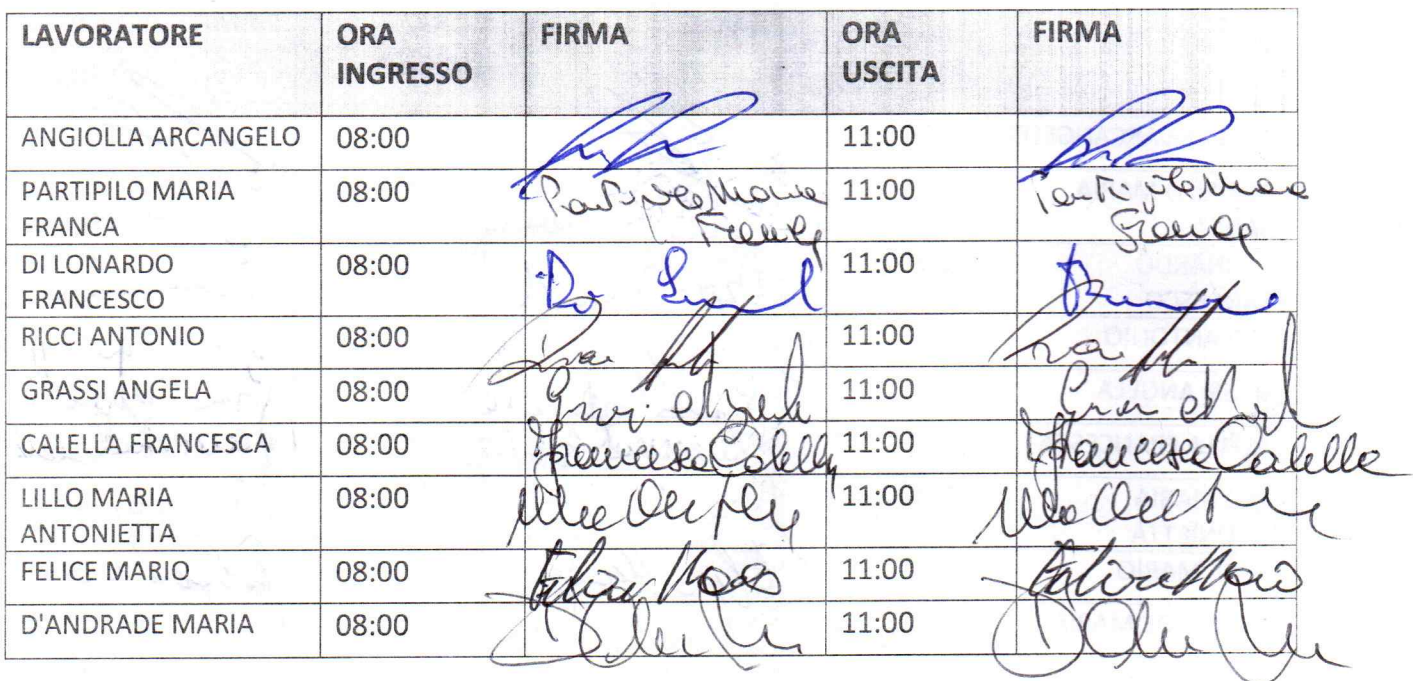 LAVORATORE ORA INGRESSO FIRMA ORA USCITA FIRMA
ANGIOLLA ARCANGELO 08:00 11:00
PARTIPILO MARIA FRANCA 08:00 Partipilo Maria Franca 11:00 Partipilo Maria Franca
DI LONARDO FRANCESCO 08:00 Di 11:00
RICCI ANTONIO 08:00 11:00
GRASSI ANGELA 08:00 Grassi Angela 11:00
CALELLA FRANCESCA 08:00 Francesca Calella 11:00 Francesca Calella
LILLO MARIA ANTONIETTA 08:00 11:00
FELICE MARIO 08:00 Felice Mario 11:00 Felice Mario
D'ANDRADE MARIA 08:00 11:00